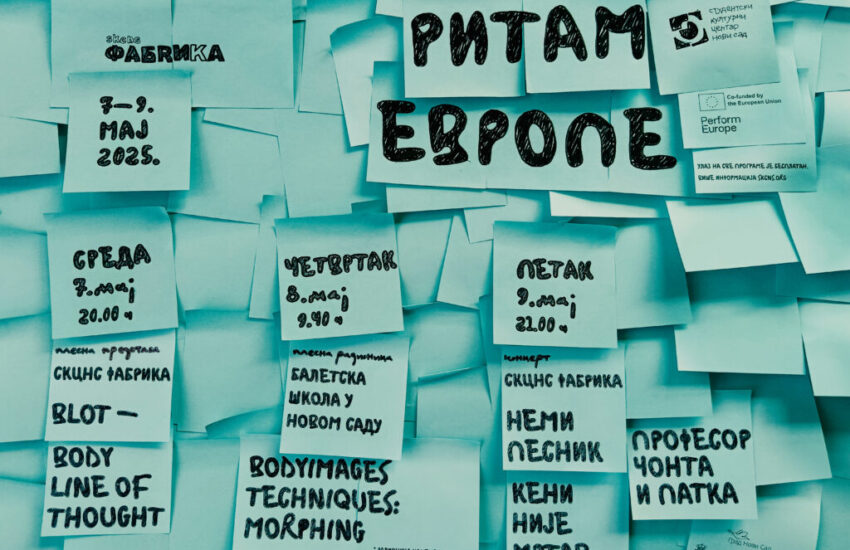 skcns
ФАБRИКА
7–9.
МАЈ
2025.
РИТАМ
ЕВРОПЕ
СТУДЕНТСКИ
КУЛТУРНИ
ЦЕНТАР
НОВИ САД
Co-funded by
the European Union
Perform
Europe
УЛАЗ НА СВЕ ПРОГРАМЕ ЈЕ БЕСПЛАТАН.
ВИШЕ ИНФОРМАЦИЈА SKCNS.ORG
СРЕДА
7. мај
20.00 ч
плесна представа
СКЦНС ФАБРИКА
BLOT —
BODY
LINE OF
THOUGHT
ЧЕТВРТАК
8. мај
9.40 ч
плесна радионица
БАЛЕТСКА
ШКОЛА У
НОВОМ САДУ
BODYIMAGES
TECHNIQUES:
MORPHING
ПЕТАК
9. мај
21.00 ч
концерт
СКЦНС ФАБРИКА
НЕМИ
ПЕСНИК
КЕНИ
НИЈЕ
МРТАВ
ПРОФЕСОР
ЧОНТА
И ПАТКА
Град Нови Сад